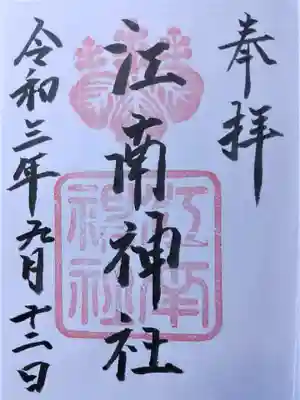 奉拝
江南神社
江南神社
令和三年九月十二日